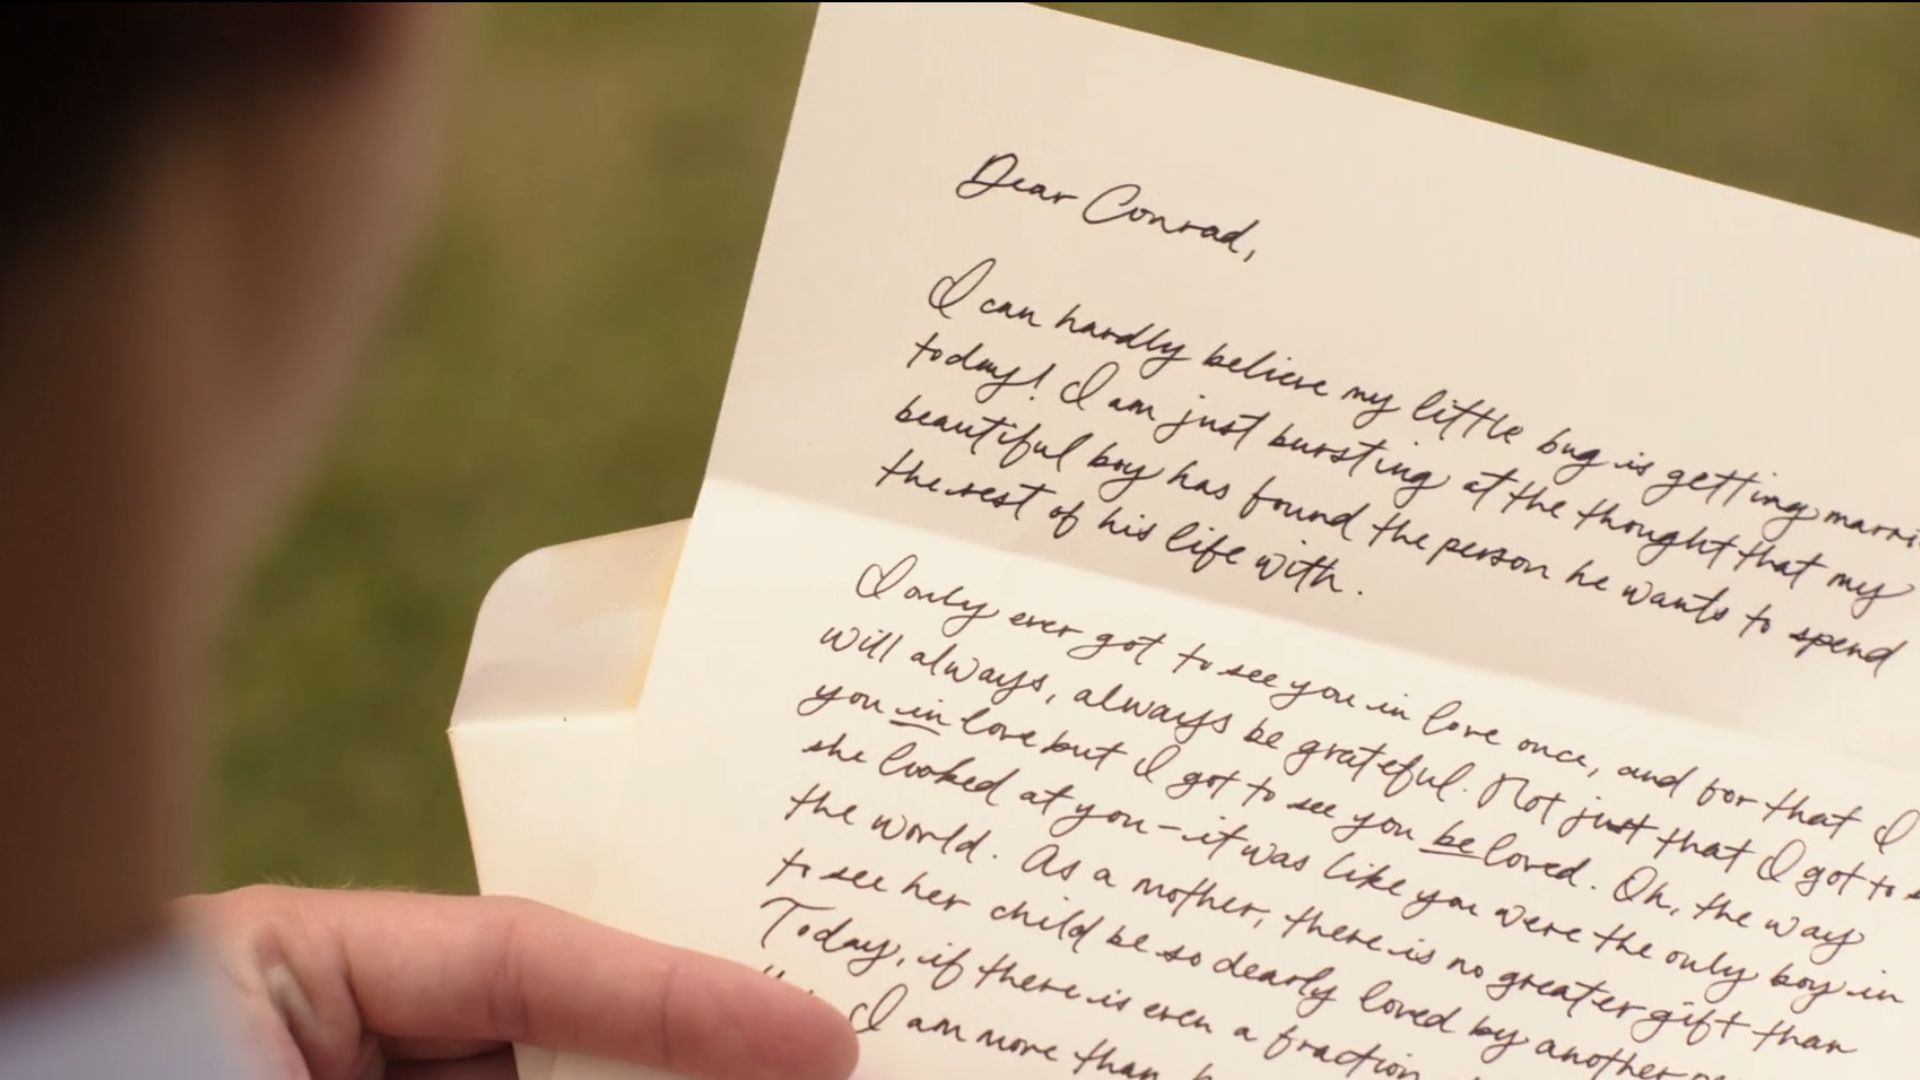 Dear Conrad,
I can hardly believe my little bug is getting marri
today! I am just bursting at the thought that my
beautiful boy has found the person he wants to spend
the rest of his life with.
I only ever got to see you in love once, and for that I
will always, always be grateful. Not just that I got to s
you in love but I got to see you be loved. Oh, the way
she looked at you-it was like you were the only boy in
the world. As a mother, there is no greater gift than
to see her child be so dearly loved by another
Today, if there is even a fraction
I am more than